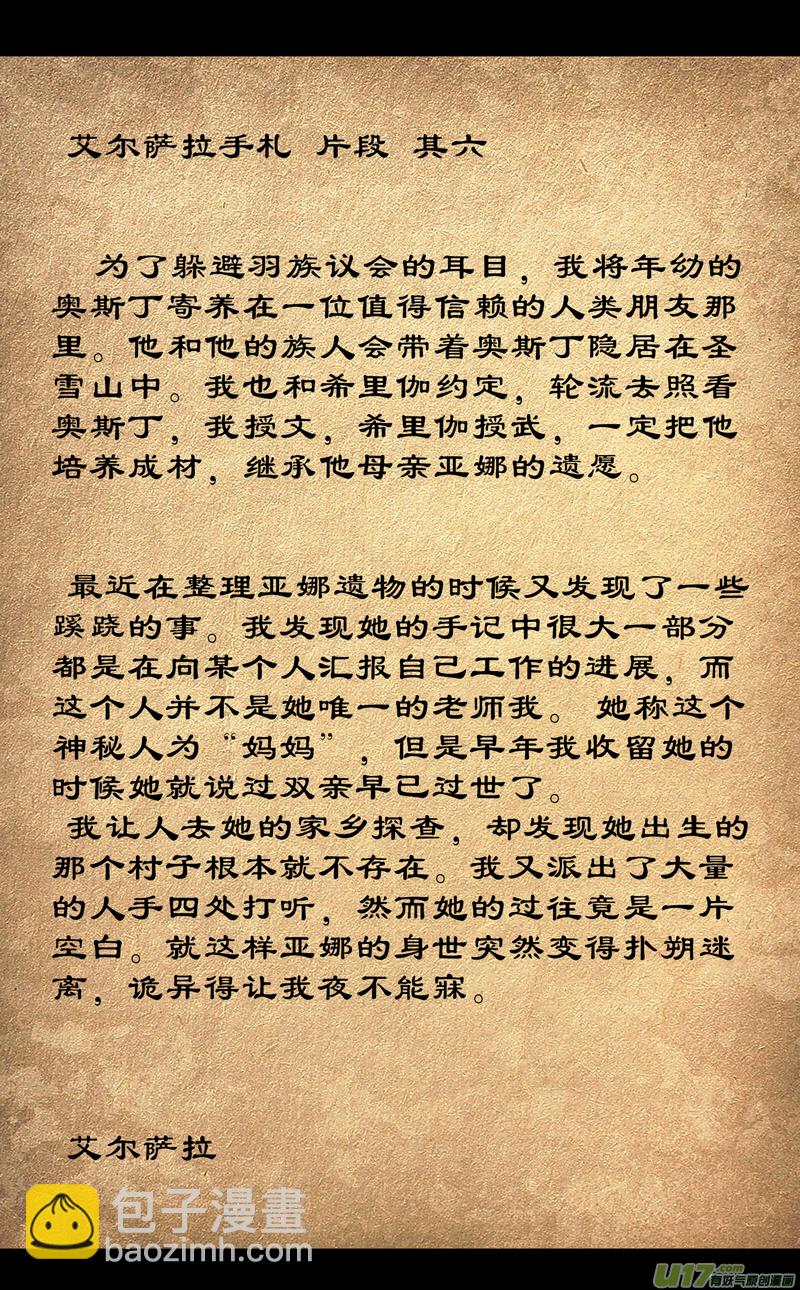 艾尔萨拉手札 片段 其六
为了躲避羽族议会的耳目，我将年幼的
奥斯丁寄养在一位值得信赖的人类朋友那
里。他和他的族人会带着奥斯丁隐居在圣
雪山中。我也和希里伽约定，轮流去照看
奥斯丁，我授文，希里伽授武，一定把他
培养成材，继承他母亲亚娜的遗愿。
最近在整理亚娜遗物的时候又发现了一些
蹊跷的事。我发现她的手记中很大一部分
都是在向某个人汇报自己工作的进展，而
这个人并不是她唯一的老师我。 她称这个
神秘人为“妈妈”，但是早年我收留她的
时候她就说过双亲早已过世了。
我让人去她的家乡探查，却发现她出生的
那个村子根本就不存在。我又派出了大量
的人手四处打听，然而她的过往竟是一片
空白。就这样亚娜的身世突然变得扑朔迷
离，诡异得让我夜不能寐。
艾尔萨拉
包子漫畫
baozimh.com
U17.com
有妖气原创漫画